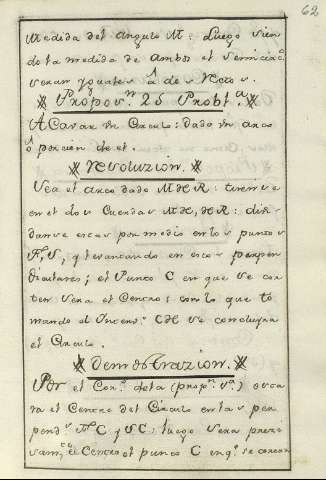 62
Medida del angulo M: Luego sien
do la medida de Ambos el Semicirc.º
seran Yguales à dos rectos.
Propos.ⁿ 25 Probl.ª
Acavar un Circulo: dado un arco
ò porcion de el.
Resoluzion.
Sea el arco dado M H R: tirense
en el dos Cuerdas M H, H R: divi
danse estas por medio en los puntos
F, S, y levantando en estos perpen
diculares; el Punto C en que se cor
ten sera el Centro: con lo que to
mando el Interv.º C H se concluyra
el Circulo.
Demostrazion.
Por el Cor.º de la (prop.ⁿ) esta
ra el Centro del Circulo en las per
pend.ˢ F C y S C: luego sera preci
sam.ᵗᵉ el Centro el punto C en q.ᵉ se cortan